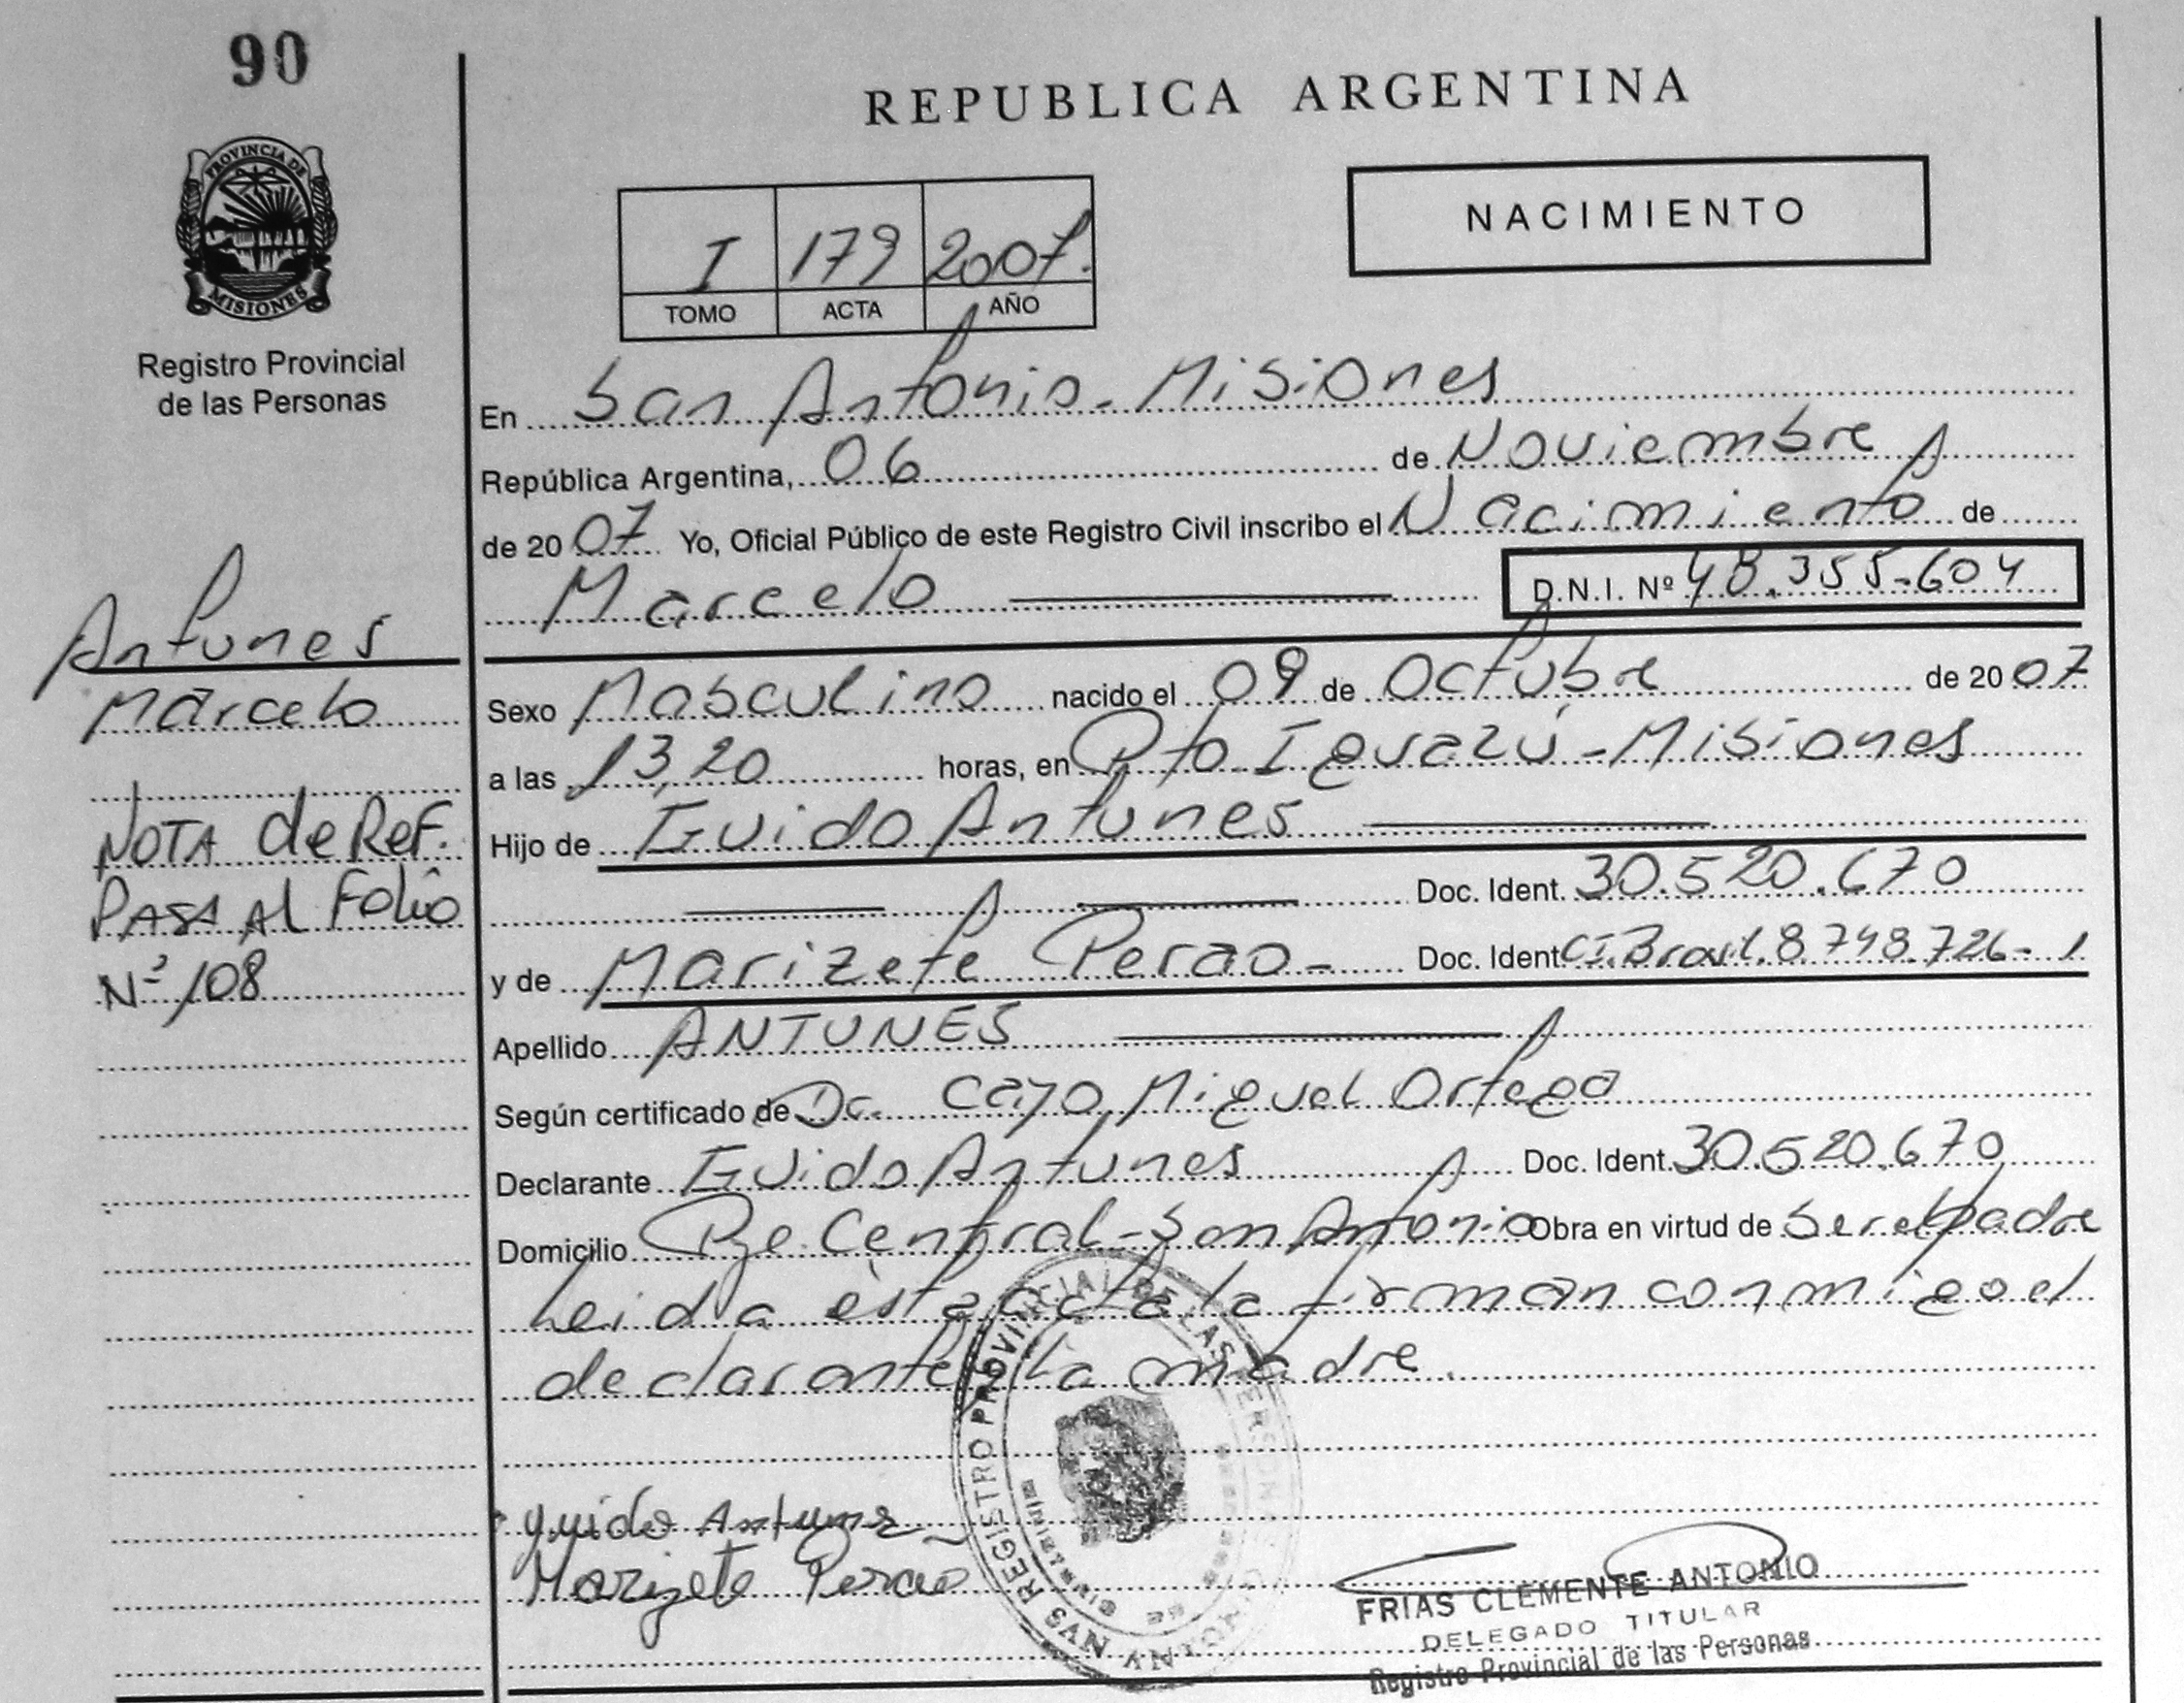 90
REPUBLICA ARGENTINA
PROVINCIA DE
MISIONES
Registro Provincial
de las Personas
NACIMIENTO
I 179 2007.
TOMO ACTA AÑO
En San Antonio - Misiones
República Argentina, 06 de Noviembre
de 2007 Yo, Oficial Público de este Registro Civil inscribo el Nacimiento de
Marcelo D.N.I. Nº 48.355.604
Antunes
Marcelo
NOTA de Ref.
PASA Al Folio
Nº 108
Sexo Masculino nacido el 09 de Octubre de 2007
a las 13,20 horas, en Pto Iguazú - Misiones
Hijo de Guido Antunes
Doc. Ident. 30.520.670
y de Marizete Perao - Doc. Ident CI. Brasil. 8.748.726-1
Apellido ANTUNES
Según certificado de Dr. Cayo Miguel Ortega
Declarante Guido Antunes Doc. Ident. 30.520.670
Domicilio Pje Central - San Antonio Obra en virtud de Ser el padre
Leida esta acta la firman conmigo el
declarante y la madre.
REGISTRO PROVINCIAL DE LAS PERSONAS
SAN ANTONIO
guido Antunez
Marizete Perao
FRIAS CLEMENTE ANTONIO
DELEGADO TITULAR
Registro Provincial de las Personas